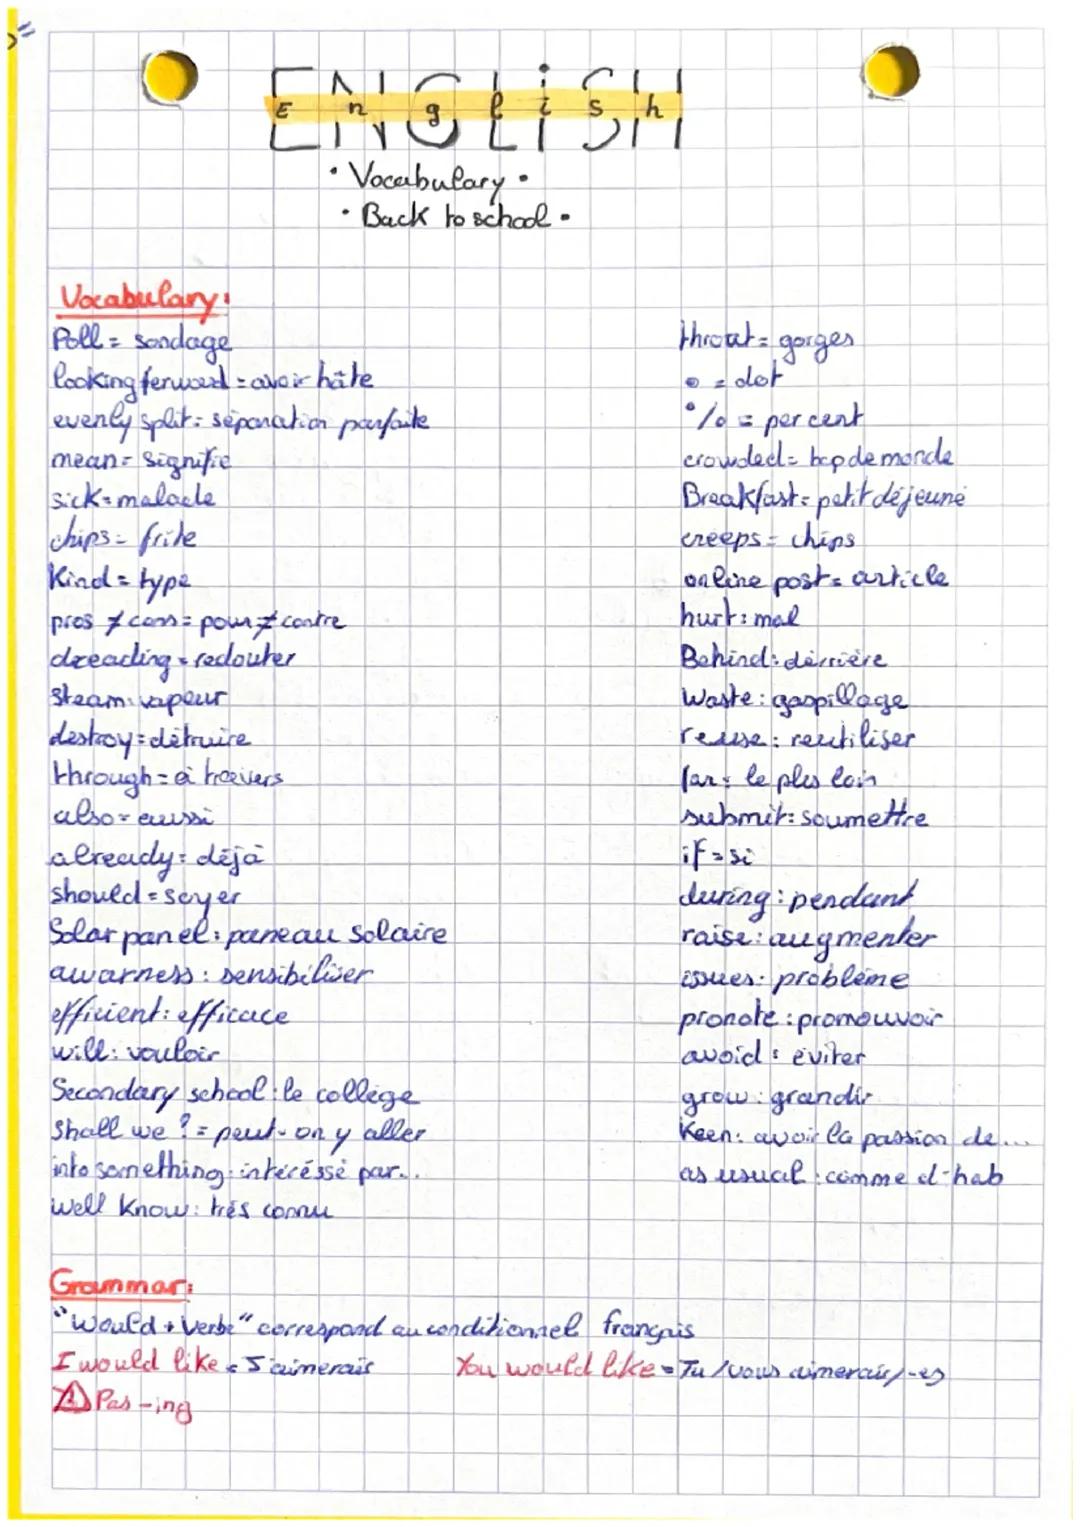 ENGLiSH
E n g l i s h
• Vocabulary •
• Back to school •
Vocabulary:
Poll = sondage
looking forward = avoir hâte
evenly split = séparation parfaite
mean = signifie
sick = malade
chips = frite
Kind = type
pros ≠ cons = pour ≠ contre
dreading = redouter
steam: vapeur
destroy = détruire
through = à travers
also = aussi
already = déjà
should = 
Solar panel: paneau solaire
awarness: sensibiliser
efficient: efficace
will: vouloir
Secondary school: le collège
Shall we ? = peut-on y aller
into something: intéréssé par...
well know: trés connu
throat = gorges
• = dot
% = per cent
crowded = bcp de monde
Breakfast = petit déjeuné
creeps = chips
online post = article
hurt: mal
Behind: dérrière
Waste: gaspillage
reuse: reutiliser
far: le plus loin
submit: soumettre
if = si
during: pendant
raise: augmenter
issues: problème
pronote: promouvoir
avoid: éviter
grow: grandir
Keen: avoir la passion de...
as usual: comme d-hab
Grammar:
"Would + Verbe" correspond au conditionnel français
I would like = J'aimerais You would like = Tu/vous aimerais/-es
⚠ Pas -ing